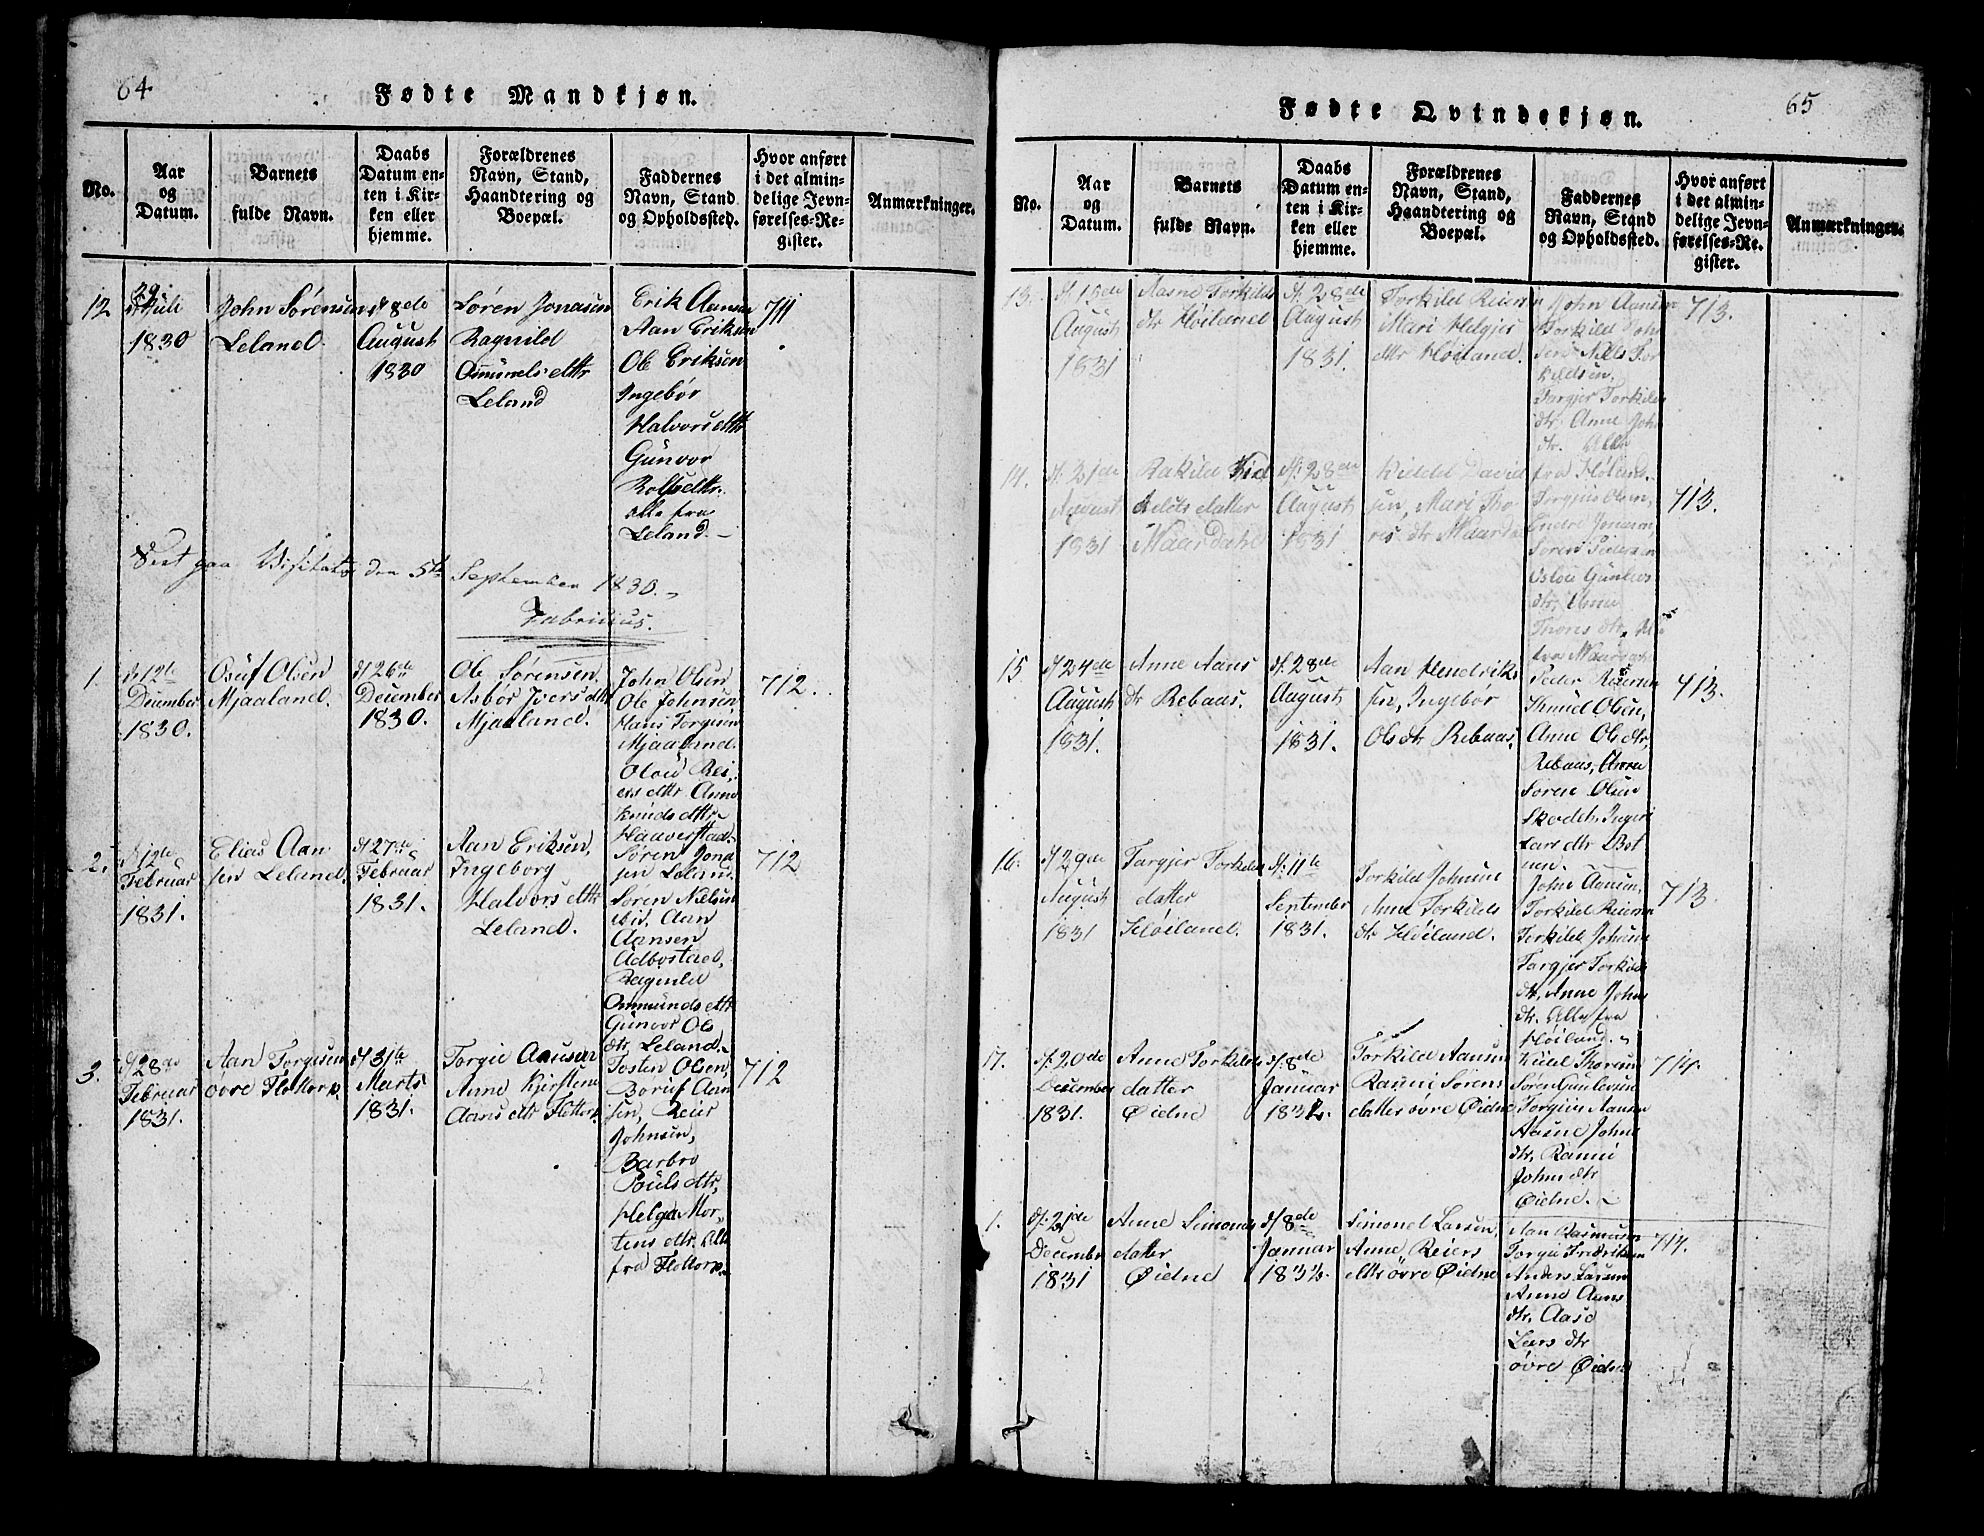 64.
Fødte Mandkjøn.
No.
Aar
og
Datum.
Barnets
fulde Navn.
Daabs
Datum en-
ten i Kir-
ken eller
hjemme.
Forældrenes
Navn, Stand,
Haandtering og
Boepæl.
Faddernes
Navn, Stand
og Opholdssted.
Hvor anført
i det almin-
delige Jevn-
førelses-Re-
gister.
Anmærkninger.
12
29
Juli
1830
John Sørensen
Leland
d. 8de
August
1830
Søren Jonasen
Ragnild
Omundsdttr
Leland
Erik Aansen
Aan Eriksen
Ole Eriksen
Ingebør
Halvorsdttr
Gunvor
Rolfsdttr.
alle fra
Leland.
711
Seet paa Visitats den 5te September 1830.
Fabricius.
1.
d. 12te
December
1830.
Osuf Olsen
Mjaaland.
d. 26de
December
1830.
Ole Sørensen.
Asbør Iversdttr
Mjaaland.
John Olsen
Ole Johnsen
Hans Torgusen
Mjaaland.
Olou Rei-
ersdttr Anne
Knudsdttr
Haaverstad.
712.
2.
d. 12te
Februar
1831.
Elias Aan
sen Leland.
d. 27de
Februar
1831.
Aan Eriksen,
Ingeborg
Halvorsdttr
Leland.
Søren Jona
sen Leland.
Søren Nielsen
ibid. Aan
Aansen
Adbostaed,
Ragnild
Ommundsdttr
Gunvor Ols
dtr Leland.
712
3.
d. 28de
Februar
1831.
Aan Torgusen
øvre Flottorp.
d. 31te
Marts
1831.
Torgie Aanusen
Anne Kjerstine
Aansdttr Flottorp
Tosten Olsen,
Boruf Aan
sen, Reier
Johnsen,
Barbro
Poulsdttr,
Helga Mor-
tensdttr. Alle
fra Flottorp.
712
65
Fødte Qvindekjøn.
No.
Aar
og
Datum.
Barnets
fulde Navn.
Daabs
Datum en-
ten i Kir-
ken eller
hjemme.
Forældrenes
Navn, Stand,
Haandtering og
Boepæl.
Faddernes
Navn, Stand
og Opholdssted.
Hvor anført
i det almin-
delige Jevn-
førelses-Re-
gister.
Anmærkninger.
13.
d. 15de
August
1831
Aasne Torkilds
dtr Høiland
d. 28de
August
1831.
Torkild Reiersen
Mari Helgjes
dttr Høiland.
John Aansen
Torkild John
sen Niels Tor
kildsen.
Targjer Torkilds
dtr, Anne John
dtr. Alle
fra Høiland.
713.
14.
d. 21de
August
1831
Rakild Kid
kelds datter
Maardahl
d. 28de
August
1831
Kield David
sen, Mari Tho
res dtr Maardal
Torgius Olsen,
Endre Jonasen,
Søren Pedersen
Osloü Gunleus
dtr, Anne
Thores dtr, alle
fra Maardahl
713.
15
d. 24de
August
1831.
Anne Aans
dtr Rebaas.
d. 28de
August
1831.
Aan Hendrik
sen, Ingebør
Olsdtr Rebaas.
Peder Reiersen
Knud Olsen,
Anne Olsdtr,
Rebaas, Anne
Søren Olsen
Skodeh. Ingeri
Lars dtr Bot
nen.
713.
16.
d. 29de
August
1831
Targjer Torkilds
datter
Høiland.
d. 11te
September
1831.
Torkild Johnsen
Anne Torkilds
dtr Høiland.
John Aansen,
Torkild Reiersen
Torkild Johnsen
Targjer Torkilds
dtr, Anne Johns
dtr. Alle fra
Høiland.
713.
17.
d. 20de
December
1831.
Anne Torkilds
datter
Øidne
d. 8de
Januar
1832.
Torkild Aansen
Ranni Sørens
datter øvre Øidne
Kield Thorsen
Søren Gunleusen
Torgius Aansen
Aasne Johns
dtr, Ranni
Johnsdtr
Øidne.
714.
1.
d. 21de
December
1831
Anne Simons
datter
Øidne
d. 8de
Januar
1832.
Simon Larsen,
Anne Reiers
dttr øvre Øidne
Aan Rasmusen
Torgie Fredriksen
Anders Larsen
Anne Aans
dtr, Aase
Lars dtr
øvre Øidne
714.